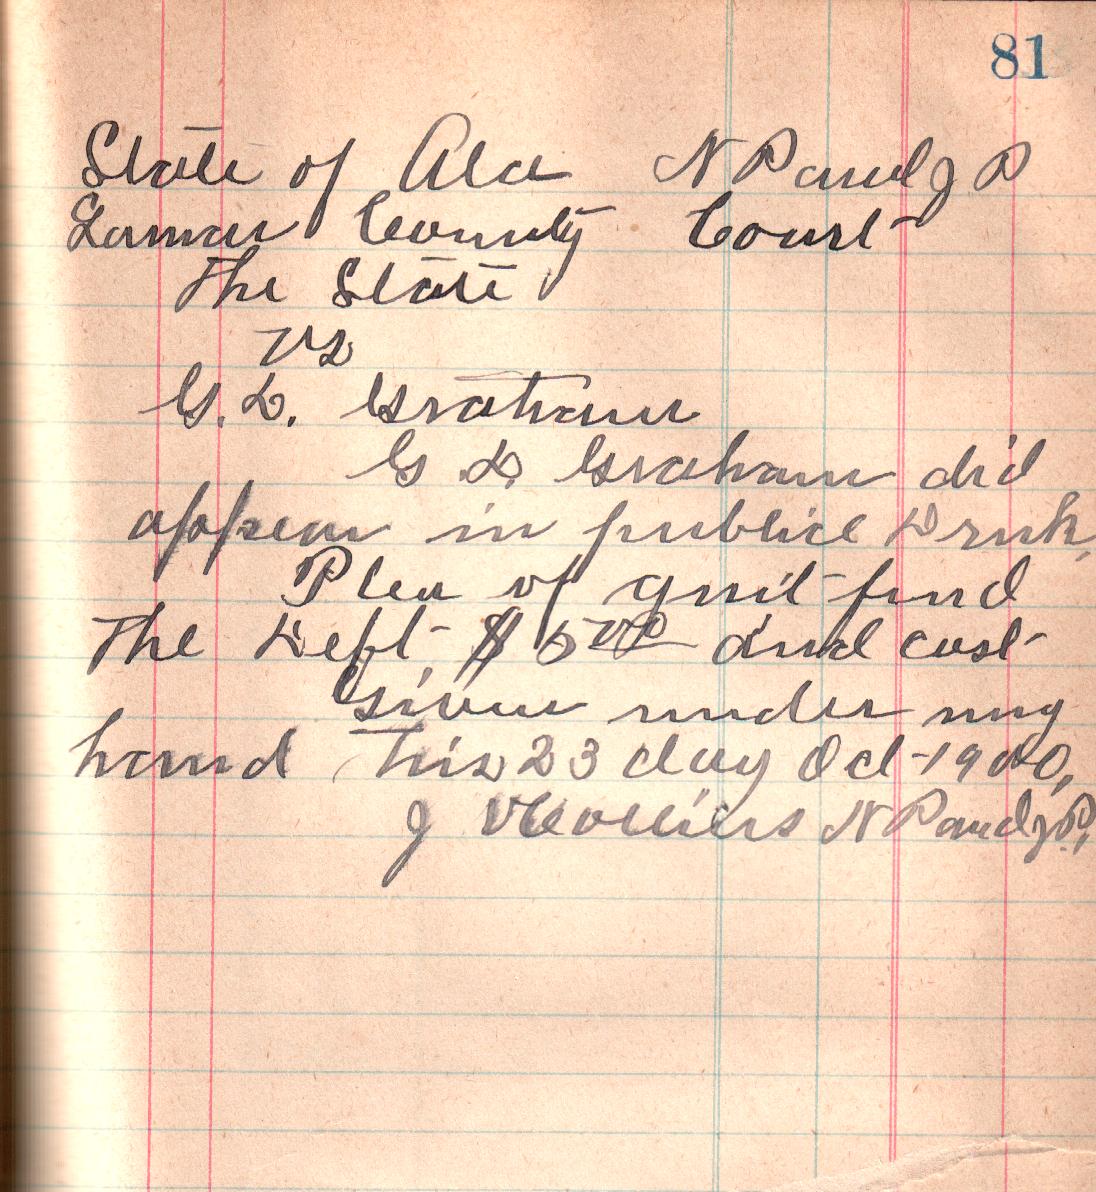 81
State of Ala N P and J P
Lamar County Court
The State
vs
G. D. Graham
G D. Graham did
appear in publice Drnk,
Plea of guilt find
The Deft. $5 00 and cost
Given under my
hand This 23 day Oct 1900,
J V N P and J P.,